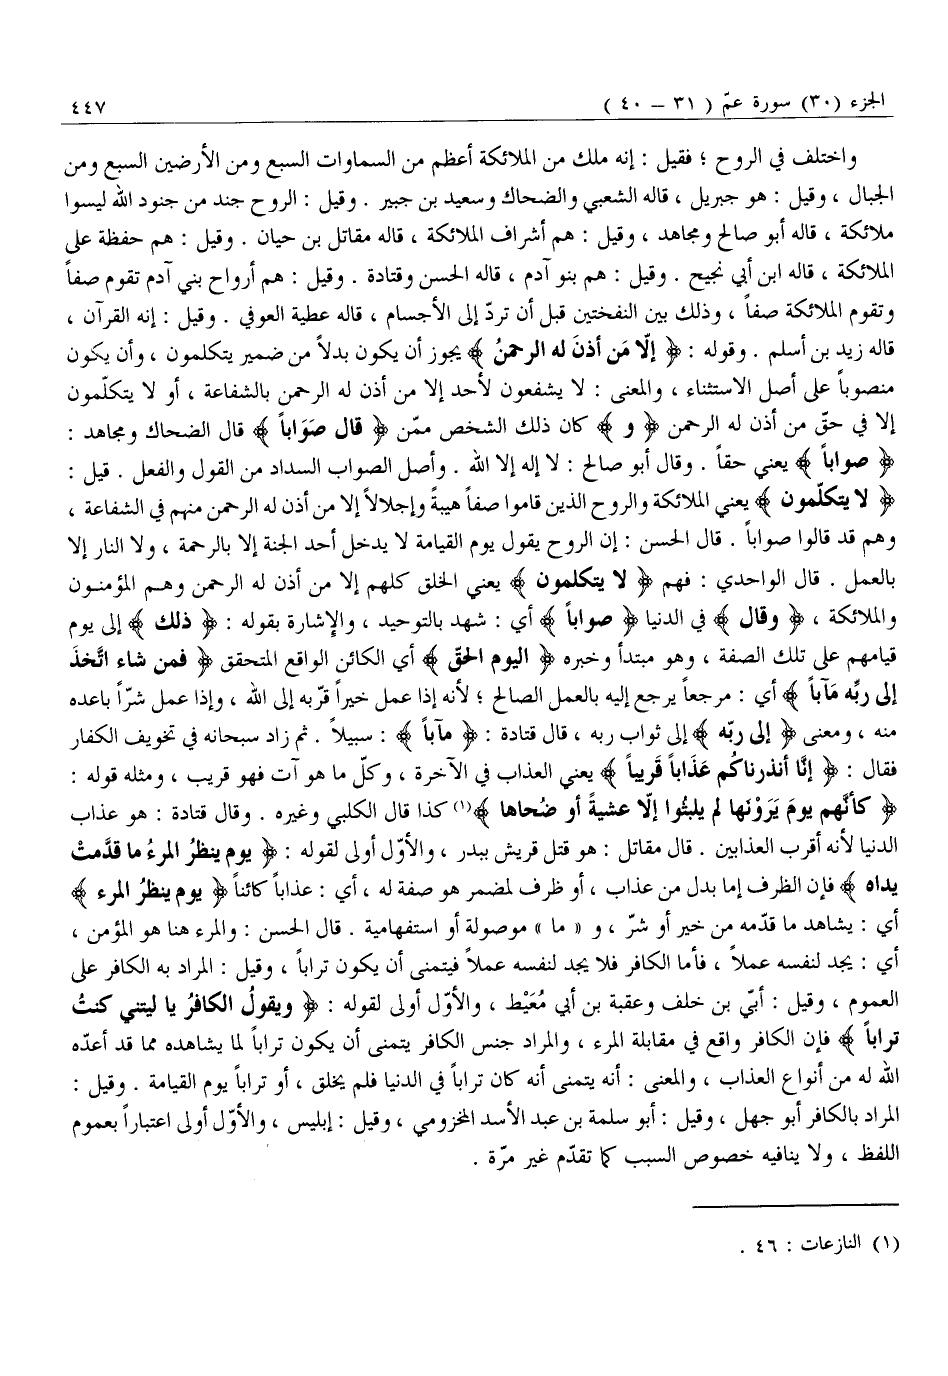 الجزء (٣٠) سورة عمّ ( ٣١ – ٤٠ ) ٤٤٧
واختلف في الروح ؛ فقيل : إنه ملك من الملائكة أعظم من السماوات السبع ومن الأرضين السبع ومن
الجبال ، وقيل : هو جبريل ، قاله الشعبي والضحاك وسعيد بن جبير . وقيل : الروح جند من جنود الله ليسوا
ملائكة ، قاله أبو صالح ومجاهد ، وقيل : هم أشراف الملائكة ، قاله مقاتل بن حيان . وقيل : هم حفظة على
الملائكة ، قاله ابن أبي نجيح . وقيل : هم بنو آدم ، قاله الحسن وقتادة . وقيل : هم أرواح بني آدم تقوم صفاً
وتقوم الملائكة صفاً ، وذلك بين النفختين قبل أن تردّ إلى الأجسام ، قاله عطية العوفي . وقيل : إنه القرآن ،
قاله زيد بن أسلم . وقوله : ﴿ إلّا مَن أذنَ له الرحمنُ ﴾ يجوز أن يكون بدلاً من ضمير يتكلمون ، وأن يكون
منصوباً على أصل الاستثناء ، والمعنى : لا يشفعون لأحد إلا من أذن له الرحمن بالشفاعة ، أو لا يتكلّمون
إلا في حقّ من أذن له الرحمن ﴿ و ﴾ كان ذلك الشخص ممّن ﴿ قال صَوَاباً ﴾ قال الضحاك ومجاهد :
﴿ صواباً ﴾ يعني حقاً . وقال أبو صالح : لا إله إلا الله . وأصل الصواب السداد من القول والفعل . قيل :
﴿ لا يتكلّمون ﴾ يعني الملائكة والروح الذين قاموا صفاً هيبةً وإجلالاً إلا من أذن له الرحمن منهم في الشفاعة ،
وهم قد قالوا صواباً . قال الحسن : إن الروح يقول يوم القيامة لا يدخل أحد الجنة إلا بالرحمة ، ولا النار إلا
بالعمل . قال الواحدي : فهم ﴿ لا يتكلمون ﴾ يعني الخلق كلهم إلا من أذن له الرحمن وهم المؤمنون
والملائكة ، ﴿ وقال ﴾ في الدنيا ﴿ صواباً ﴾ أي : شهد بالتوحيد ، والإشارة بقوله : ﴿ ذلك ﴾ إلى يوم
قيامهم على تلك الصفة ، وهو مبتدأ وخبره ﴿ اليوم الحقّ ﴾ أي الكائن الواقع المتحقق ﴿ فمن شاء اتَّخذَ
إلى ربِّه مَآباً ﴾ أي : مرجعاً يرجع إليه بالعمل الصالح ؛ لأنه إذا عمل خيراً قرّبه إلى الله ، وإذا عمل شرّاً باعده
منه ، ومعنى ﴿ إلى ربّه ﴾ إلى ثواب ربه ، قال قتادة : ﴿ مآباً ﴾ : سبيلاً . ثم زاد سبحانه في تخويف الكفار
فقال : ﴿ إنَّا أنذرناكُم عَذَاباً قَريباً ﴾ يعني العذاب في الآخرة ، وكلّ ما هو آت فهو قريب ، ومثله قوله :
﴿ كأنَّهم يومَ يَرَوْنَها لم يلبثُوا إلّا عشيةً أو ضُحاها ﴾(١) كذا قال الكلبي وغيره . وقال قتادة : هو عذاب
الدنيا لأنه أقرب العذابين . قال مقاتل : هو قتل قريش ببدر ، والأوّل أولى لقوله : ﴿ يوم ينظُر المرءُ ما قدَّمتْ
يداه ﴾ فإن الظرف إما بدل من عذاب ، أو ظرف لمضمر هو صفة له ، أي : عذاباً كائناً ﴿ يوم ينظرُ المرء ﴾
أي : يشاهد ما قدّمه من خير أو شرّ ، و « ما » موصولة أو استفهامية . قال الحسن : والمرء هنا هو المؤمن ،
أي : يجد لنفسه عملاً ، فأما الكافر فلا يجد لنفسه عملاً فيتمنى أن يكون تراباً ، وقيل : المراد به الكافر على
العموم ، وقيل : أبيّ بن خلف وعقبة بن أبي مُعَيْط ، والأوّل أولى لقوله : ﴿ ويقولُ الكافرُ يا ليتني كنتُ
تراباً ﴾ فإن الكافر واقع في مقابلة المرء ، والمراد جنس الكافر يتمنى أن يكون تراباً لما يشاهده مما قد أعدّه
الله له من أنواع العذاب ، والمعنى : أنه يتمنى أنه كان تراباً في الدنيا فلم يخلق ، أو تراباً يوم القيامة . وقيل :
المراد بالكافر أبو جهل ، وقيل : أبو سلمة بن عبد الأسد المخزومي ، وقيل : إبليس ، والأوّل أولى اعتباراً بعموم
اللفظ ، ولا ينافيه خصوص السبب كما تقدّم غير مرّة .
(١) النازعات : ٤٦ .